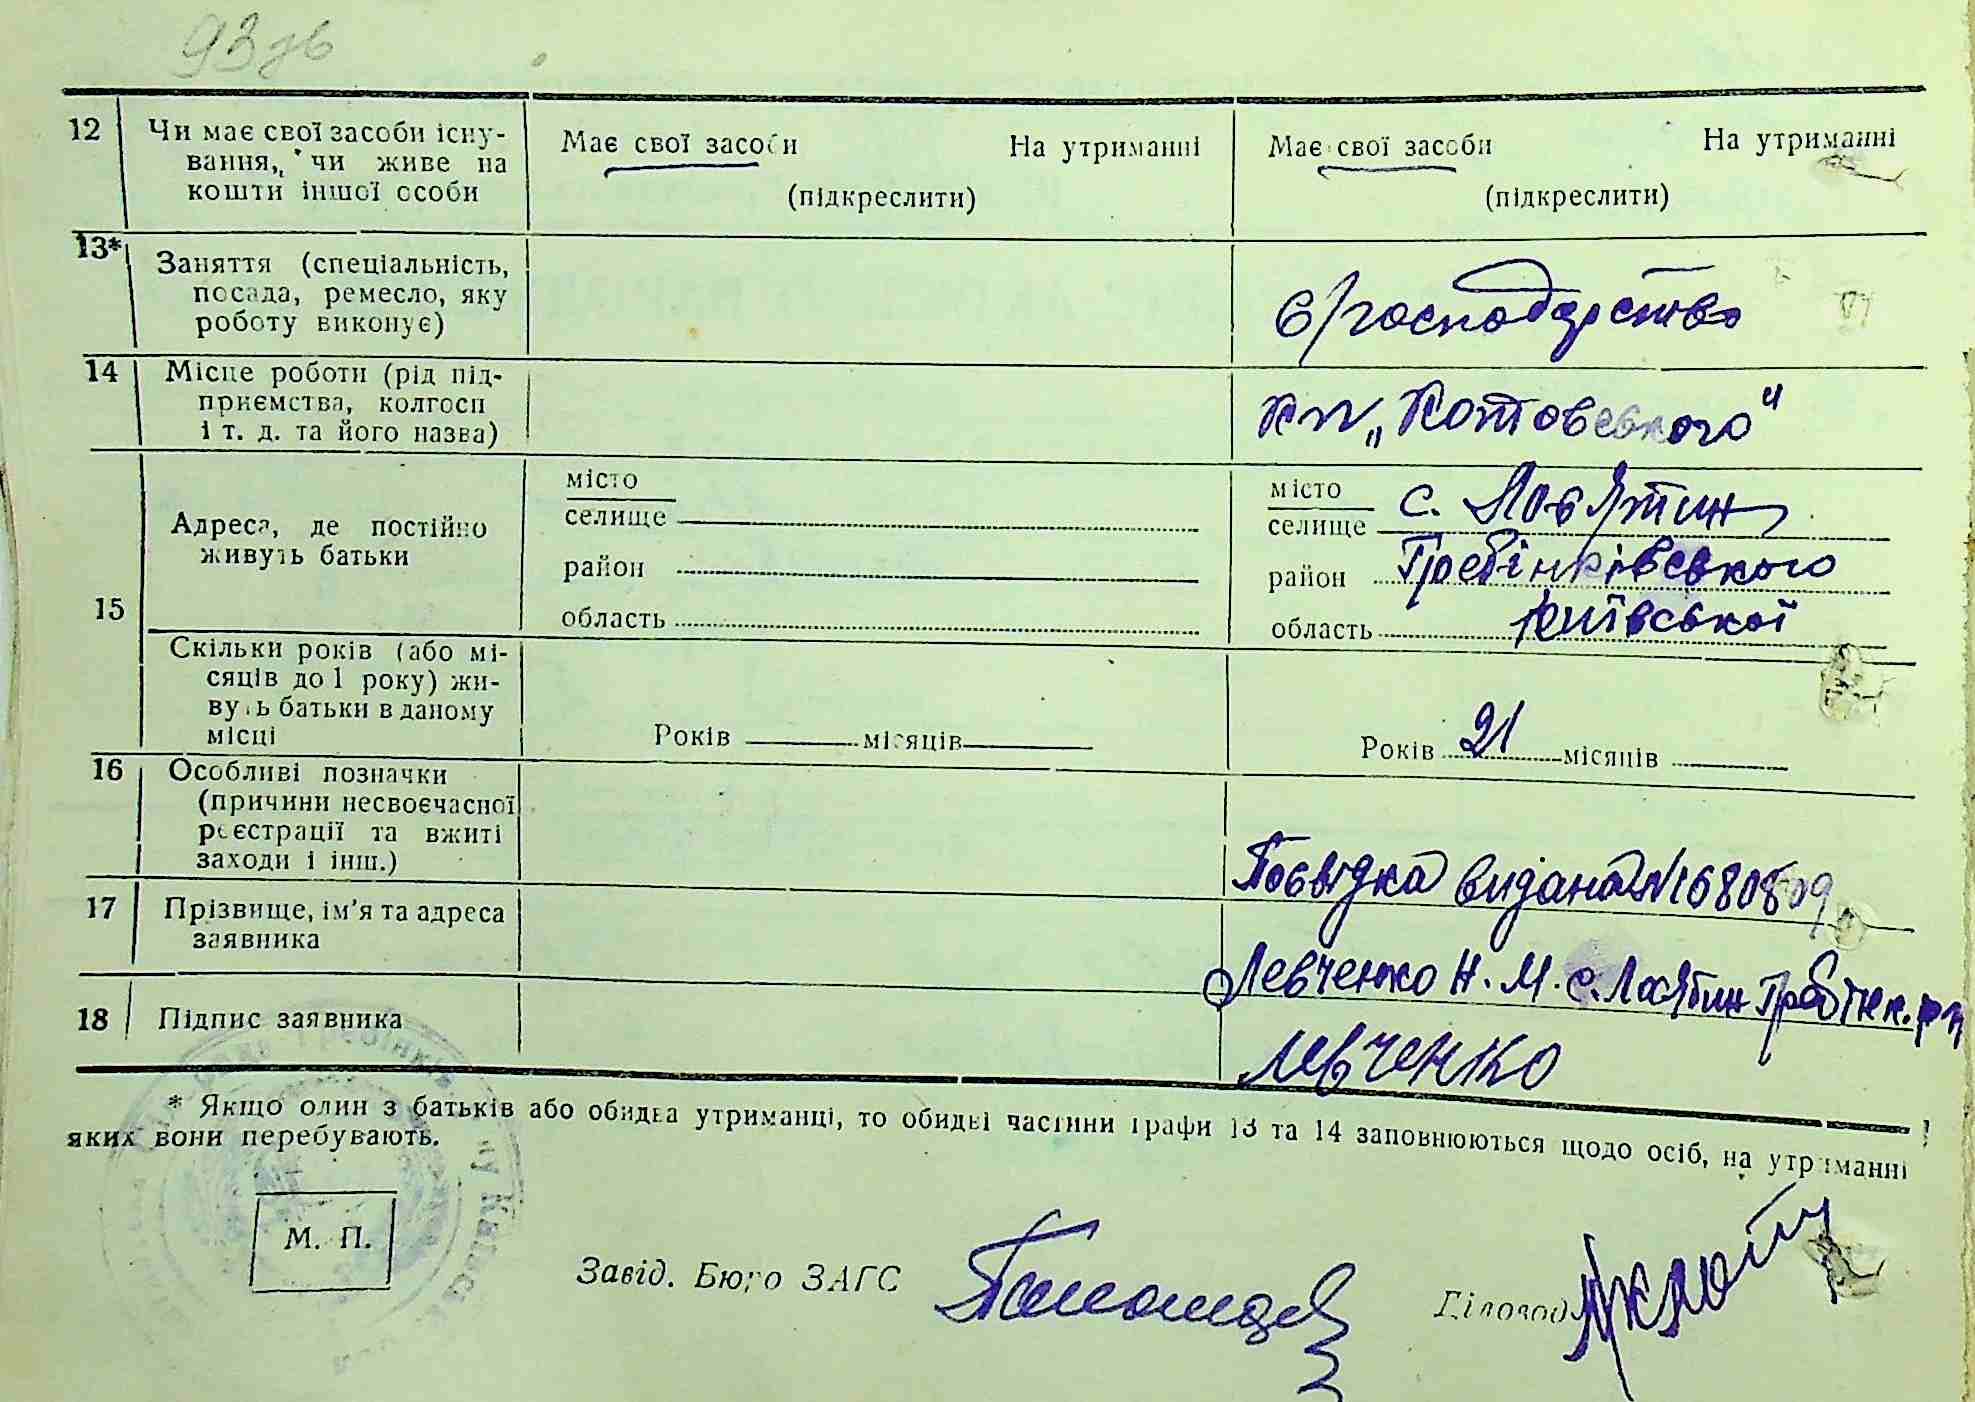 93 зв
12 Чи має свої засоби існу-
вання, чи живе на
кошти іншої особи
Має свої засоби На утриманні
(підкреслити)
Має свої засоби На утриманні
(підкреслити)
13* Заняття (спеціальність,
посада, ремесло, яку
роботу виконує)
с/господарство
14 Місце роботи (рід під-
приємства, колгосп
і т. д. та його назва)
кп „Котовського"
15
Адреса, де постійно
живуть батьки
місто
селище
район
область
місто
селище с.
район Гребінківського
область Київської
Скільки років (або мі-
сяців до 1 року) жи-
вуть батьки в даному
місці
Років місяців
Років 21 місяців
16 Особливі позначки
(причини несвоєчасної
реєстрації та вжиті
заходи і інш.)
Посвідка видана N1680809
17 Прізвище, ім'я та адреса
заявника
Левченко Н. М. с. Гребінк. рн
18 Підпис заявника
Левченко
* Якщо один з батьків або обидва утриманці, то обидві частини графи 13 та 14 заповнюються щодо осіб, на утриманні
яких вони перебувають.
М. П.
Завід. Бюро ЗАГС
Діловод